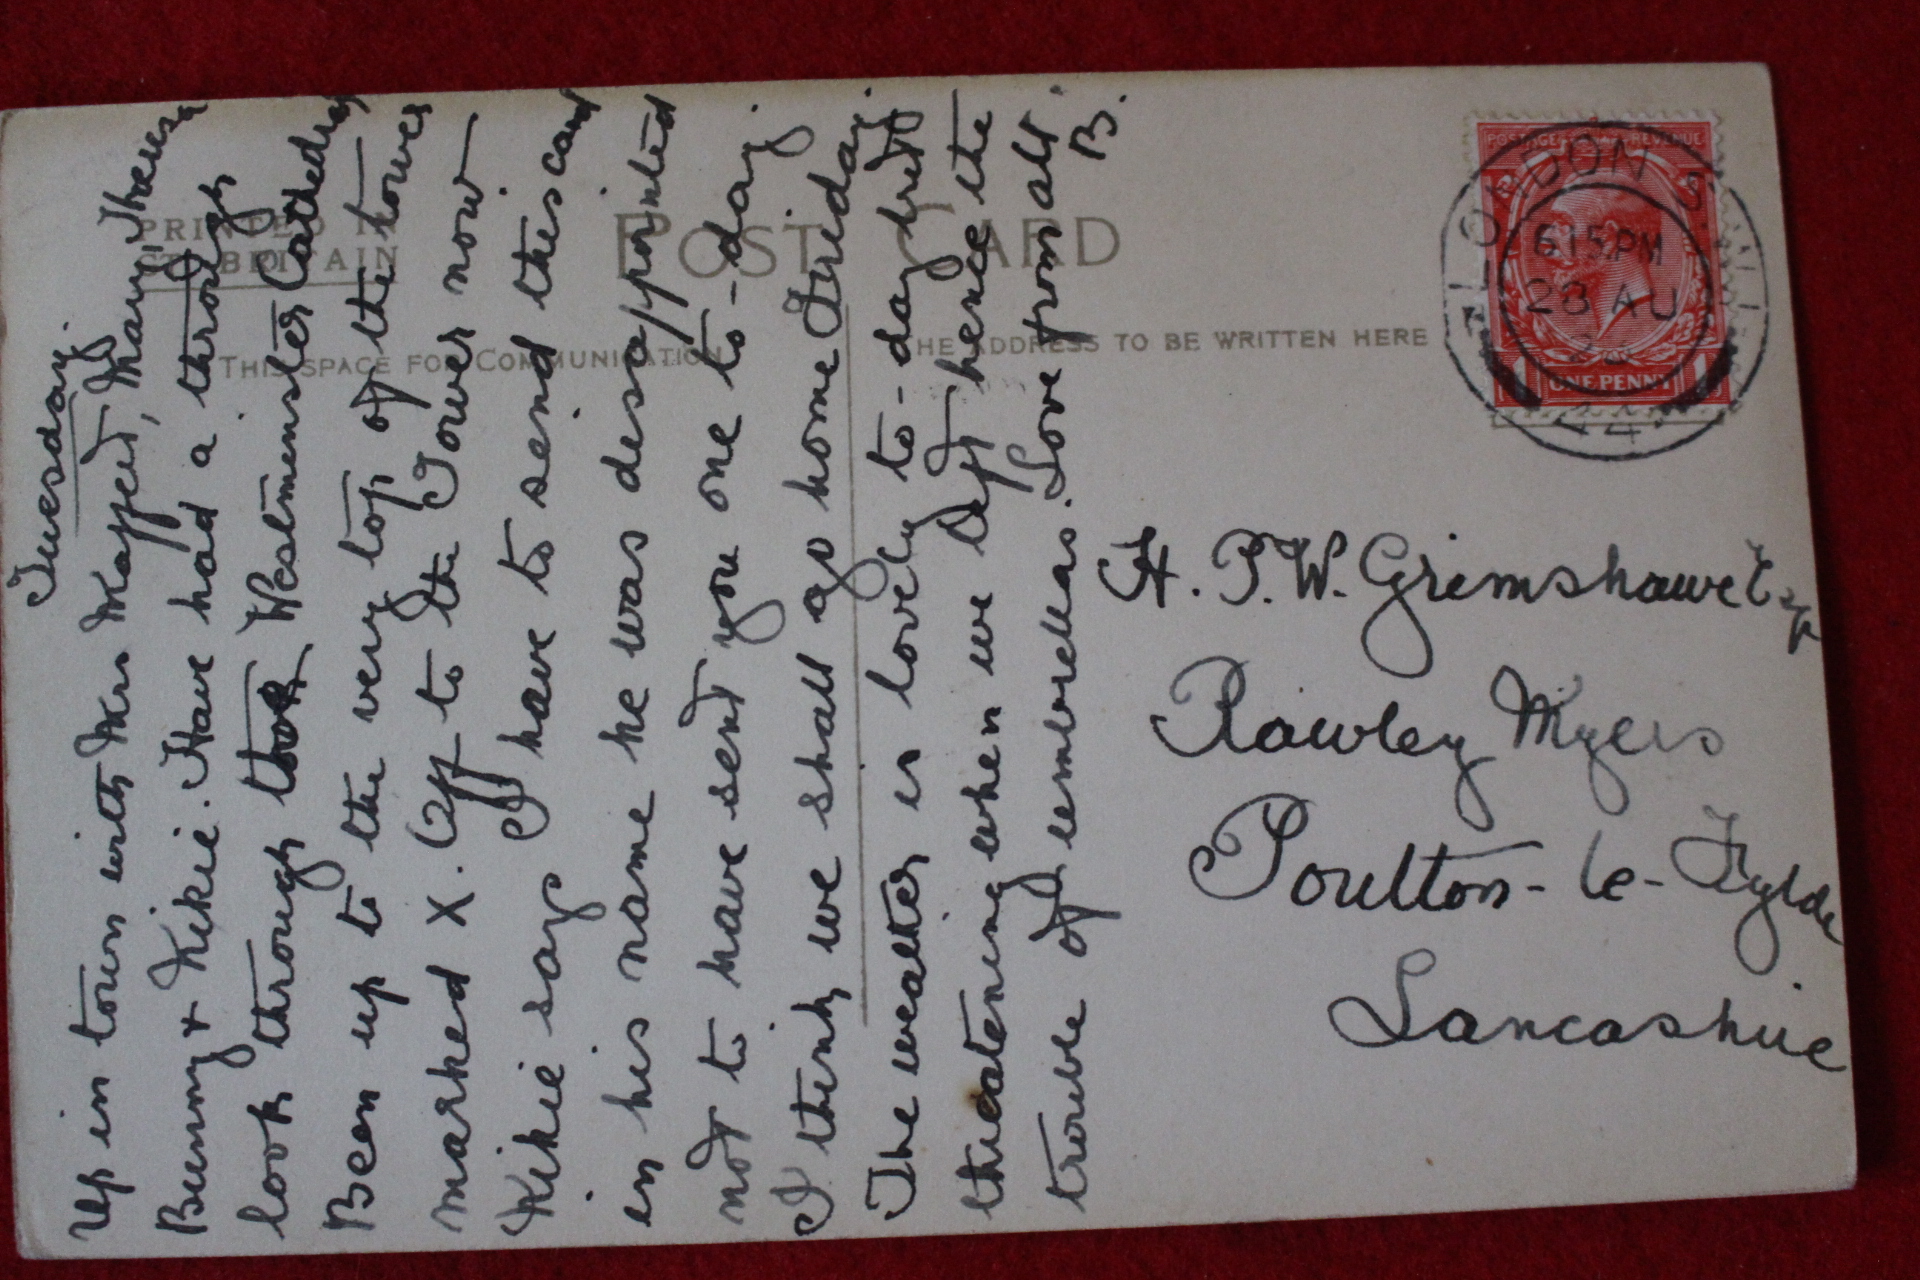 PRINTED IN
GT. BRITAIN
POST CARD
THIS SPACE FOR COMMUNICATION
THE ADDRESS TO BE WRITTEN HERE
POSTAGE REVENUE
ONE PENNY
LONDON S.W.1
6.15 PM
23 AU
44
Tuesday.
Up in town with Mrs Maffett, Mary, Theresa
Bunny & Kikie. Have had a through
look through Westminster Cathedral
Been up to the very top of the tower
marked X. Off to the Tower now
Kikie says I have to send this card
in his name he was disappointed
not to have sent you one to-day
I think we shall go home Friday.
The weather is lovely to-day but
threatening when we left hence the
trouble of umbrellas. Love from all
B.
H. P. W. Grimshawe Esq
Rawley Myers
Poulton-le-Fylde
Lancashire